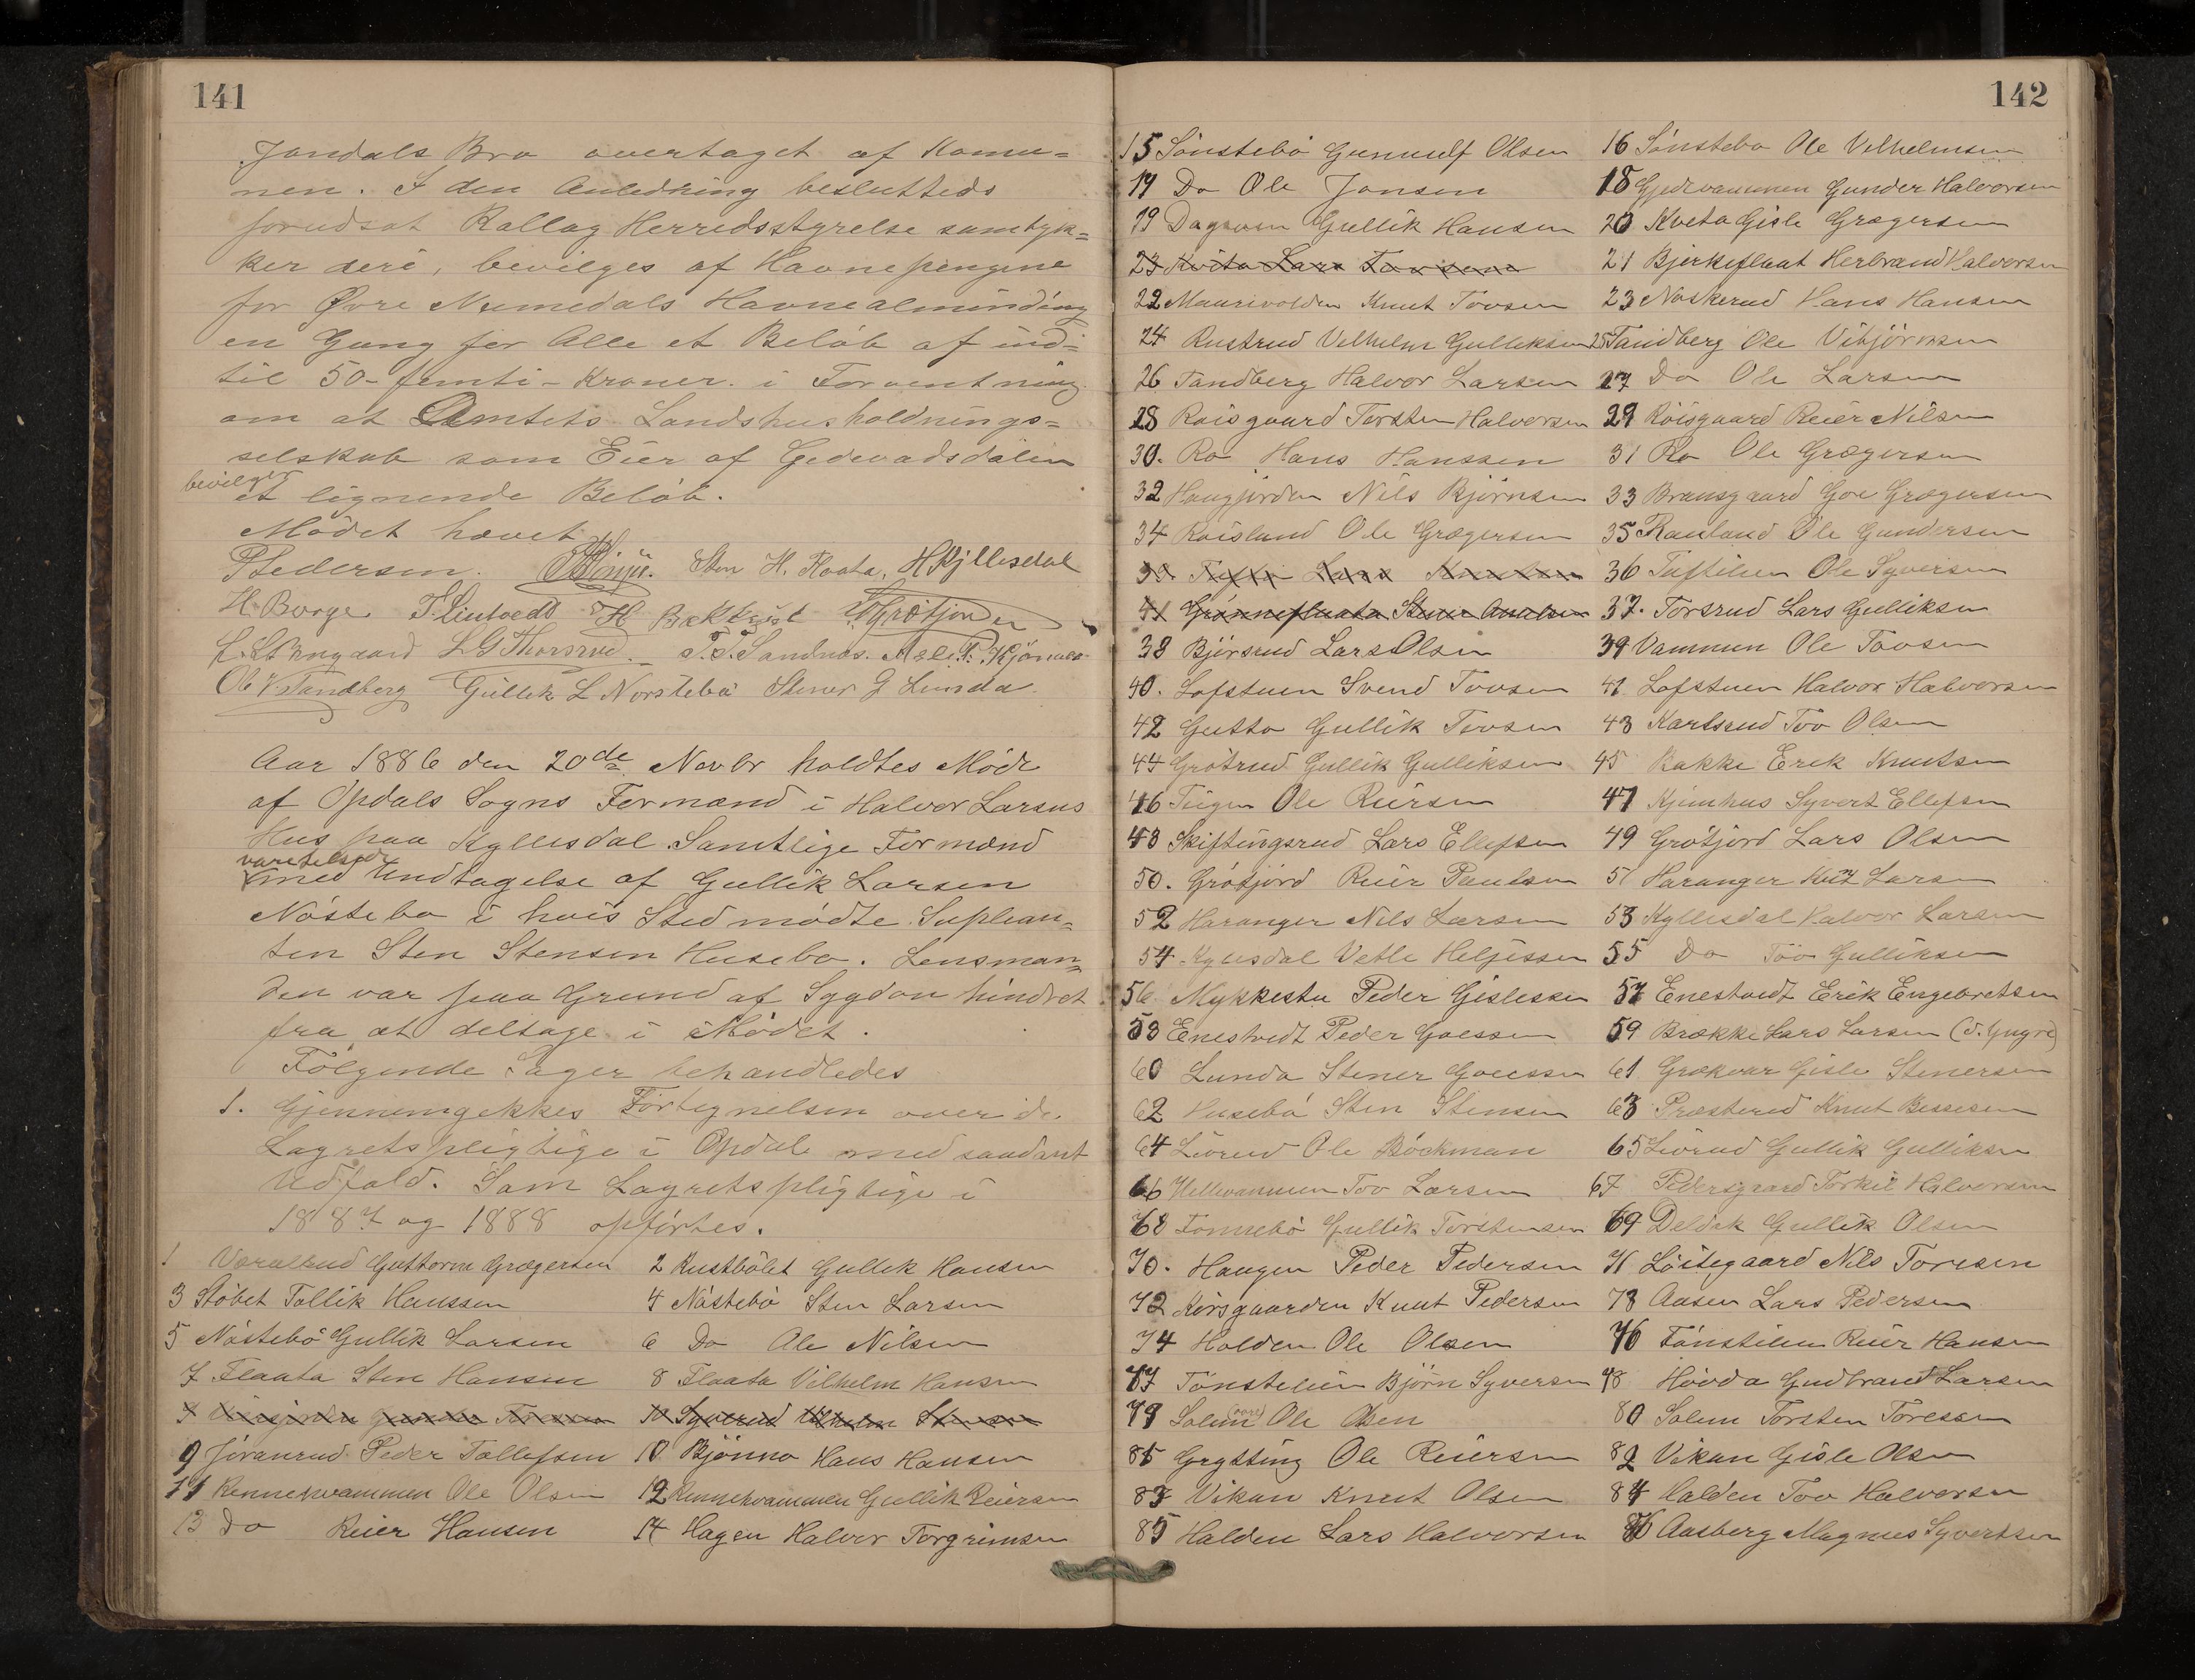 141
Jondals Bro overtaget af Komu=
nen. I den Anledning besluttedes
forudsat Rollag Herredsstyrelse samtyk=
ker deri, bevilges af Havnepengene
for Øvre Numedals Havnealminding
en Gang for Alle et Beløb af ind=
til 50 - femti - Kroner i Forventning
om at Amtets Landshusholdnings=
selskab som Eier af Gedevadsdalen
bevilger
et lignende Beløb.
Mødet hævet
PPedersen. Sten H. Flaata, H Kjllesdal
H. Borge T. Lintvedt H Bakkest Grøtjorden
L G Thorsrud T. T. Sandnæs.
Ole V. Tandberg Gullik L Norstebø Stener G Lunda.
Aar 1886 den 20de Novbr holdtes Møde
af Opdals Sogns Formænd i Halvor Larsens
Hus paa Kyllesdal Samtlige Formænd
var tilstede
med Undtagelse af Gullik Larsen
Nøstebø i hvis Sted mødte Suplean=
ten Sten Stensen Husebø. Lensman=
den var paa Grund af Sygdom hindret
fra at deltage i Mødet.
Følgende Sager behandledes
1. Gjennemgikkes Fortegnelsen over de
Lagretspligtige i Opdal med saadant
Udfald. Som Lagretspligtige i
1887 og 1888 opførtes.
1 Guttorm Grægersen 2 Rustbølet Gullik Hansen
3 Støbet Tollik Hanssen 4 Nøstebø Sten Larsen
5 Nøstebø Gullik Larsen 6 Do Ole Nilsen
7 Flaata Sten Hansen 8 Flaata Vilhelm Hansen
10 Syverud Vilhelm Stensen
9 Jøranrud Peder Tollefsen 10 Bjønno Hans Hansen
11 Rennehvammen Ole Olsen 12 Rennehvammen Gullik Reiersen
13 Do Reier Hansen 14 Hagen Halvor Torgrimsen
142
15 Sønstebø Gunnulf Olsen 16 Sønstebø Ole Velhelmsen
17 Do Ole Jonsen 18 Gjedevammen Gunder Halvorsen
19 Gullik Hansen 20 Kveta Gisle Grægersen
Kvita Lars 21 Bjerkeflaat Herbrand Halvorsen
22 Maurivolden Knut Tovsen 23 Noskerud Hans Hansen
24 Rustrud Velhelm Gulleksen 25 Tandberg Ole Vibjørnsen
26 Tandberg Halvor Larsen 27 Do Ole Larsen
28 Roisgaard Torsten Halvorsen 29 Roisgaard Reier Nilsen
30. Ro Hans Hanssen 31 Ro Ole Grægersen
32 Haugjorden Nils Bjørnsen 33 Brunsgaard Goe Grægersen
34 Roisland Ole Grægersen 35 Rauland Ole Gundersen
Lars Knutsen 36 Tuftelien Ole Syversen
41 Grønneflaata Stener 37. Torsrud Lars Gulliksen
38 Bjørsrud Lars Olsen 39 Vammen Ole Tovsen
40. Lofstuen Svend Tovsen 41 Lofstuen Halvor Halvorsen
42 Gutto Gullik Tovsen 43 Karlsrud Tov Olsen
44 Grøtrud Gullik Gulliksen 45 Bakke Erek Knutsen
46 Teigen Ole Reiersen 47 Kjimhus Syvert Ellefsen
48 Skiftingsrud Lars Ellefsen 49 Grøtjord Lars Olsen
50. Grøtjord Reier Paulsen 51 Haranger Knut Larsen
52 Haranger Nils Larsen 53 Kyllesdal Halvor Larsen
54 Kylesdal Vetle Heljessen 55 Do Tov Gulliksen
56 Mykkestu Peder Gislessen 57 Enestvedt Erik Engebretsen
58 Enestvedt Peder Goessen 59 Brække Lars Larsen (d. Yngre)
60 Lunda Stener Goessen 61 Grækvar Gisle Stenersen
62 Husebø Sten Stensen 63 Præsterud Knut Bessesen
64 Liverud Ole Bøckman 65 Liverud Gullik Gulliksen
66 Hellevammen Tov Larsen 67 Pedersgaard Torkil Halvorsen
68 Tonnebø Gullik Torstensen 69 Deldek Gullik Olsen
70. Haugen Peder Pedersen 71 Løitegaard Nils Toresen
72 Korsgaarden Knut Pedersen 73 Aasen Lars Pedersen
74 Holden Ole Olsen 76 Tønstelien Reier Hansen
77 Tønstelien Bjørn Syversen 78 Hovda Gudbrand Larsen
79 Solem Ole Olsen 80 Solem Torsten Toresen
81 Grytting Ole Reiersen 82 Vikan Gisle Olsen
83 Vikan Knut Olsen 84 Halden Tov Halvorsen
85 Halden Lars Halvorsen 86 Aasberg Magnus Syvertsen